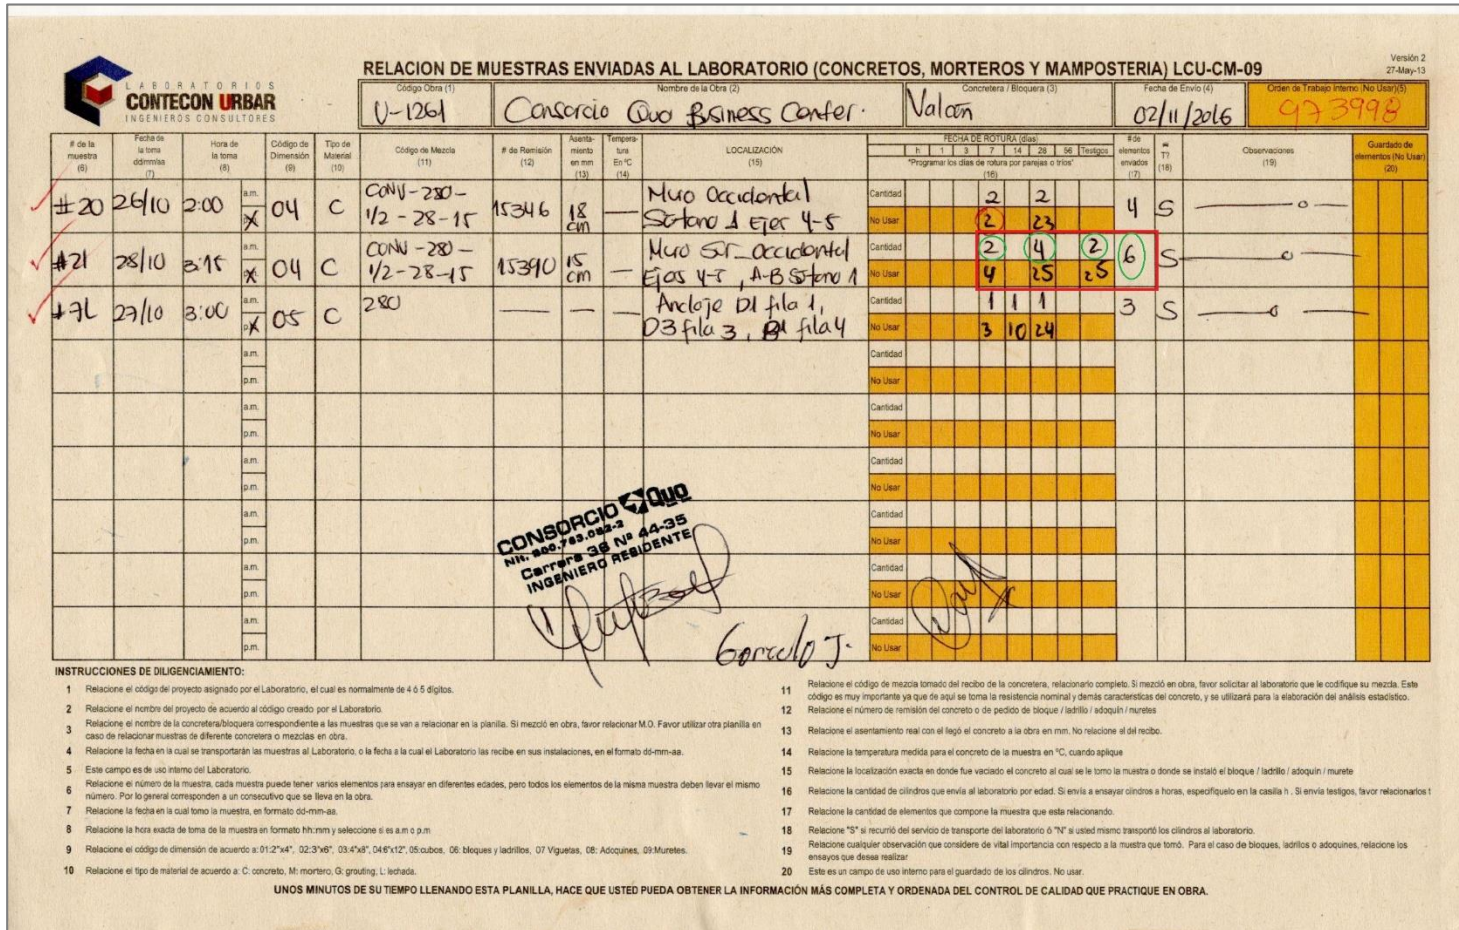 LABORATORIOS
CONTECON URBAR
INGENIEROS CONSULTORES
RELACION DE MUESTRAS ENVIADAS AL LABORATORIO (CONCRETOS, MORTEROS Y MAMPOSTERIA) LCU-CM-09
Versión 2
27-May-13
Código Obra (1) Nombre de la Obra (2) Concretera / Bloquera (3) Fecha de Envío (4) Orden de Trabajo Interno (No Usar)(5)
U-1261 Consorcio Quo Business Center. 02/11/2016 973998
# de la muestra (6) Fecha de la toma dd/mm/aa (7) Hora de la toma (8) Código de Dimensión (9) Tipo de Material (10) Código de Mezcla (11) # de Remisión (12) Asenta-miento en mm (13) Tempera-tura En °C (14) LOCALIZACIÓN (15) FECHA DE ROTURA (días) h 1 3 7 14 28 56 Testigos "Programar los días de rotura por parejas o tríos" (16) # de elementos enviados (17) T? (18) Observaciones (19) Guardado de elementos (No Usar) (20)
#20 26/10 2:00 a.m. 04 C CONV-280- 15346 18 — Muro Occidental Cantidad 2 2 4 S
1/2-28-15 cm Sótano 1 Ejes 4-5 No Usar 2 23
#21 28/10 3:15 a.m. 04 C CONV-280- 15390 15 — Muro Sur_Occidental Cantidad 2 4 2 6 S
1/2-28-15 cm Ejes 4-5, A-B Sótano 1 No Usar 4 25 25
27/10 3:00 a.m. 05 C 280 — — Anclaje D1 fila 1, Cantidad 1 1 1 3 S
D3 fila 3, fila 4 No Usar 3 10 24
a.m. Cantidad
p.m. No Usar
a.m. Cantidad
p.m. No Usar
a.m. Cantidad
p.m. No Usar
a.m. Cantidad
p.m. No Usar
a.m. Cantidad
p.m. No Usar
a.m. Cantidad
p.m. No Usar
CONSORCIO Quo
Nit.
Carrera 36 Nº 44-35
INGENIERO RESIDENTE
INSTRUCCIONES DE DILIGENCIAMIENTO:
1 Relacione el código del proyecto asignado por el Laboratorio, el cual es normalmente de 4 ó 5 dígitos.
2 Relacione el nombre del proyecto de acuerdo al código creado por el Laboratorio.
3 Relacione el nombre de la concretera/bloquera correspondiente a las muestras que se van a relacionar en la planilla. Si mezcló en obra, favor relacionar M.O. Favor utilizar otra planilla en
caso de relacionar muestras de diferente concretera o mezclas en obra.
4 Relacione la fecha en la cual se transportarán las muestras al Laboratorio, o la fecha a la cual el Laboratorio las recibe en sus instalaciones, en el formato dd-mm-aa.
5 Este campo es de uso interno del Laboratorio.
6 Relacione el número de la muestra, cada muestra puede tener varios elementos para ensayar en diferentes edades, pero todos los elementos de la misma muestra deben llevar el mismo
número. Por lo general corresponden a un consecutivo que se lleva en la obra.
7 Relacione la fecha en la cual tomo la muestra, en formato dd-mm-aa.
8 Relacione la hora exacta de toma de la muestra en formato hh:mm y seleccione si es a.m o p.m
9 Relacione el código de dimensión de acuerdo a: 01:2"x4", 02:3"x6", 03:4"x8", 04:6"x12", 05:cubos, 06: bloques y ladrillos, 07 Viguetas, 08: Adoquines, 09:Muretes.
10 Relacione el tipo de material de acuerdo a: C: concreto, M: mortero, G: grouting, L: lechada.
11 Relacione el código de mezcla tomado del recibo de la concretera, relacionarlo completo. Si mezcló en obra, favor solicitar al laboratorio que le codifique su mezcla. Este
código es muy importante ya que de aquí se toma la resistencia nominal y demás características del concreto, y se utilizará para la elaboración del análisis estadístico.
12 Relacione el número de remisión del concreto o de pedido de bloque / ladrillo / adoquín / muretes
13 Relacione el asentamiento real con el llegó el concreto a la obra en mm. No relacione el del recibo.
14 Relacione la temperatura medida para el concreto de la muestra en °C, cuando aplique
15 Relacione la localización exacta en donde fue vaciado el concreto al cual se le tomo la muestra o donde se instaló el bloque / ladrillo / adoquín / murete
16 Relacione la cantidad de cilindros que envía al laboratorio por edad. Si envía a ensayar cilindros a horas, especifíquelo en la casilla h . Si envía testigos, favor relacionarlos t
17 Relacione la cantidad de elementos que compone la muestra que esta relacionando.
18 Relacione "S" si recurrió del servicio de transporte del laboratorio ó "N" si usted mismo transportó los cilindros al laboratorio.
19 Relacione cualquier observación que considere de vital importancia con respecto a la muestra que tomó. Para el caso de bloques, ladrillos o adoquines, relacione los
ensayos que desea realizar
20 Este es un campo de uso interno para el guardado de los cilindros. No usar.
UNOS MINUTOS DE SU TIEMPO LLENANDO ESTA PLANILLA, HACE QUE USTED PUEDA OBTENER LA INFORMACIÓN MÁS COMPLETA Y ORDENADA DEL CONTROL DE CALIDAD QUE PRACTIQUE EN OBRA.